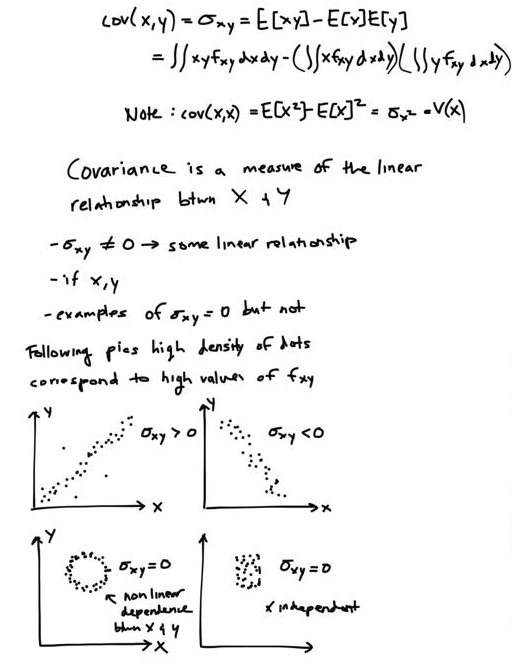 cov(x,y) = σxy = E[xy] - E[x]E[y]
= ∫∫xyfxy dxdy - (∫∫xfxy dxdy)(∫∫yfxy dxdy)
Note : cov(x,x) = E[x²] - E[x]² = σx² = V(x)
Covariance is a measure of the linear
relationship btwn X & Y
- σxy ≠ 0 → some linear relationship
- if x,y
- examples of σxy = 0 but not
Following pics high density of dots
correspond to high values of fxy
Y
σxy > 0
X
Y
σxy < 0
X
Y
σxy = 0
↖ non linear
dependence
btwn X & Y
X
σxy = 0
independent